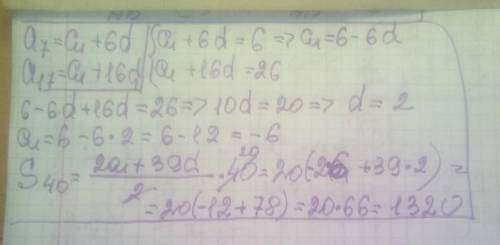 a₇=a₁+6d { a₁+6d=6 => a₁=6-6d
a₁₇=a₁+16d { a₁+16d=26
6-6d+16d=26=>10d=20=> d=2
a₁=6-6·2=6-12=-6
S₄₀=(2a₁+39d)/2·40=20(-2·6+39·2)=
=20(-12+78)=20·66=1320